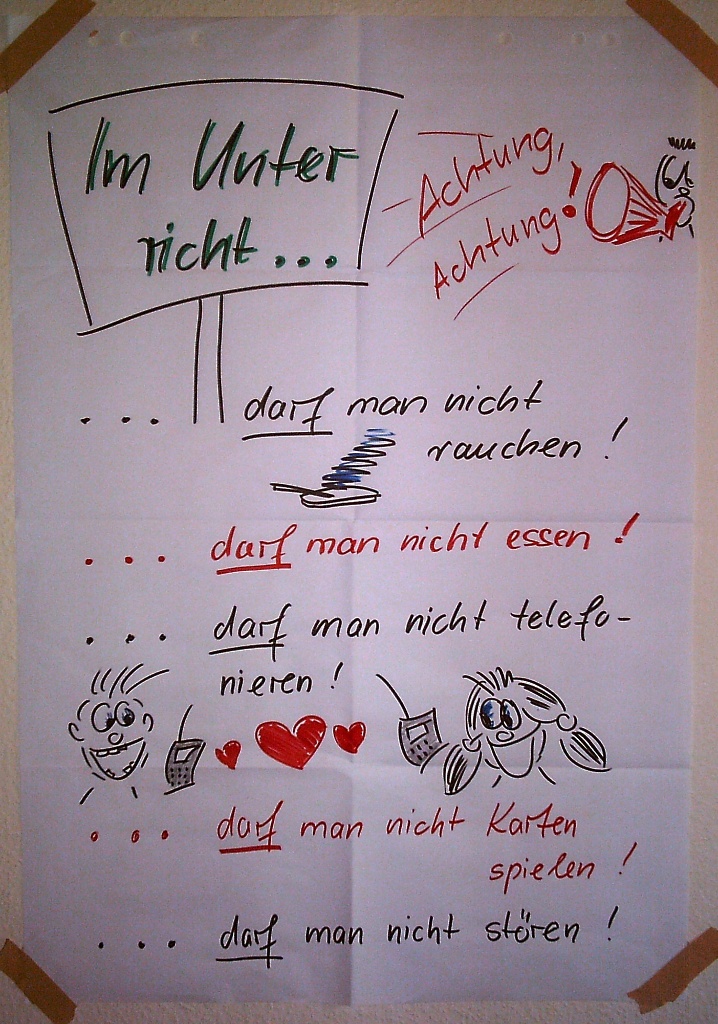 Im Unter
richt...
-Achtung,
Achtung!
... darf man nicht
rauchen!
... darf man nicht essen!
... darf man nicht telefo-
nieren!
... darf man nicht Karten
spielen!
... darf man nicht stören!